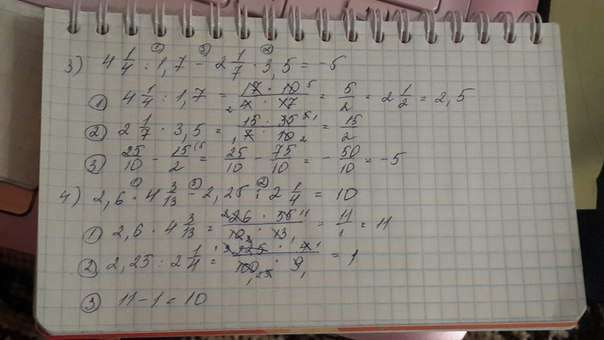 3) 4 1/4 : 1,7 - 2 1/7 · 3,5 = -5
① 4 1/4 : 1,7 = 17 · 10 / 4 · 17 = 5/2 = 2 1/2 = 2,5
② 2 1/7 · 3,5 = 15 · 35 / 7 · 10 = 15/2
③ 25/10 - 15/2 = 25/10 - 75/10 = - 50/10 = -5
4) 2,6 · 4 3/13 - 2,25 : 2 1/4 = 10
① 2,6 · 4 3/13 = 26 · 55 / 10 · 13 = 11/1 = 11
② 2,25 : 2 1/4 = 225 · 4 / 100 · 9 = 1
③ 11 - 1 = 10